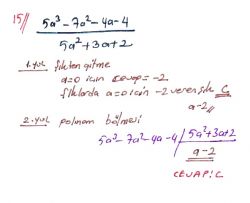 15//
5a³ - 7a² - 4a - 4
5a² + 3a + 2
1.yol şıktan gitme
a=0 için cevap = -2
şıklarda a=0 için -2 veren şık C
a-2//
2.yol polinom bölmesi
5a³ - 7a² - 4a - 4 | 5a² + 3a + 2
a-2
CEVAP: C